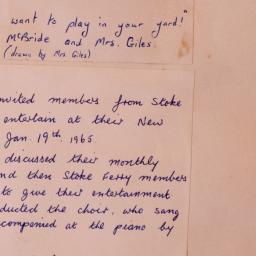 want to play in your yard!"
McBride and Mrs. Giles.
(drawn by Mrs. Giles)
nvited members from Stoke
entertain at their New
Jan. 19th. 1965.
discussed their monthly
nd then Stoke Ferry members
to give their entertainment
ducted the choir, who sang
ccompanied at the piano by